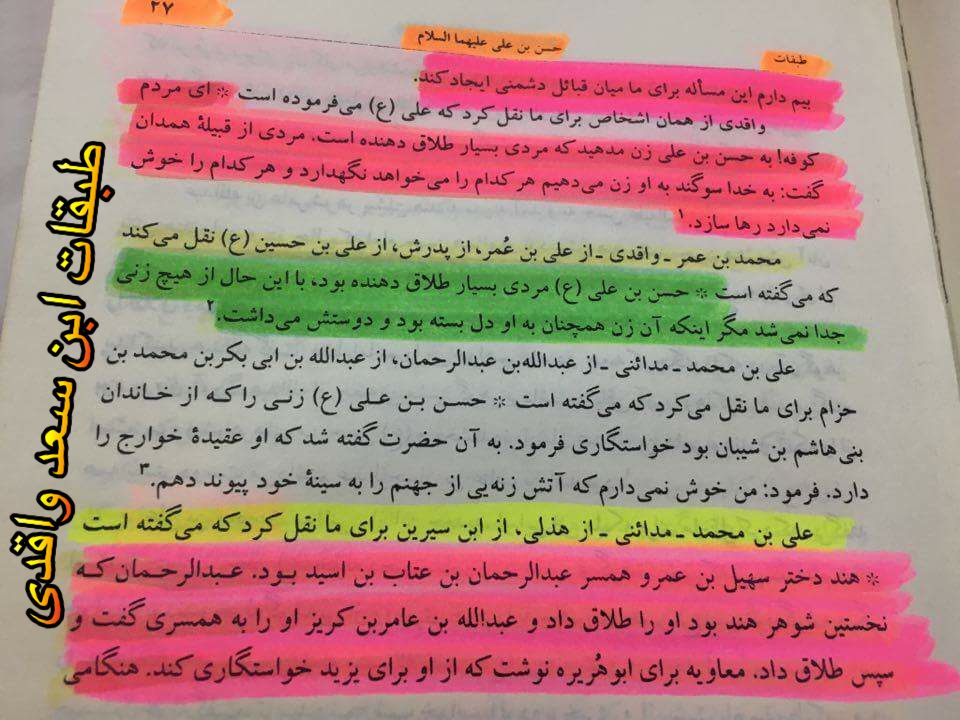 ۲۷
حسن بن علی علیهما السلام
طبقات
بیم دارم این مسأله برای ما میان قبائل دشمنی ایجاد کند.
واقدی از همان اشخاص برای ما نقل کرد که علی (ع) می‌فرموده است * ای مردم
کوفه! به حسن بن علی زن مدهید که مردی بسیار طلاق دهنده است. مردی از قبیلهٔ همدان
گفت: به خدا سوگند به او زن می‌دهیم هر کدام را می‌خواهد نگهدارد و هر کدام را خوش
نمی‌دارد رها سازد.۱
محمد بن عمر ـ واقدی ـ از علی بن عُمر، از پدرش، از علی بن حسین (ع) نقل می‌کند
که می‌گفته است * حسن بن علی (ع) مردی بسیار طلاق دهنده بود، با این حال از هیچ زنی
جدا نمی‌شد مگر اینکه آن زن همچنان به او دل بسته بود و دوستش می‌داشت.۲
علی بن محمد ـ مدائنی ـ از عبدالله‌بن عبدالرحمان، از عبدالله بن ابی بکربن محمد بن
حزام برای ما نقل می‌کرد که می‌گفته است * حسن بن علی (ع) زنی را که از خاندان
بنی‌هاشم بن شیبان بود خواستگاری فرمود. به آن حضرت گفته شد که او عقیدهٔ خوارج را
دارد. فرمود: من خوش نمی‌دارم که آتش زنه‌یی از جهنم را به سینهٔ خود پیوند دهم.۳
علی بن محمد ـ مدائنی ـ از هذلی، از ابن سیرین برای ما نقل کرد که می‌گفته است
* هند دختر سهیل بن عمرو همسر عبدالرحمان بن عتاب بن اسید بود. عبدالرحمان که
نخستین شوهر هند بود او را طلاق داد و عبدالله بن عامربن کریز او را به همسری گفت و
سپس طلاق داد. معاویه برای ابوهُریره نوشت که از او برای یزید خواستگاری کند. هنگامی
طبقات ابن سعد واقدی